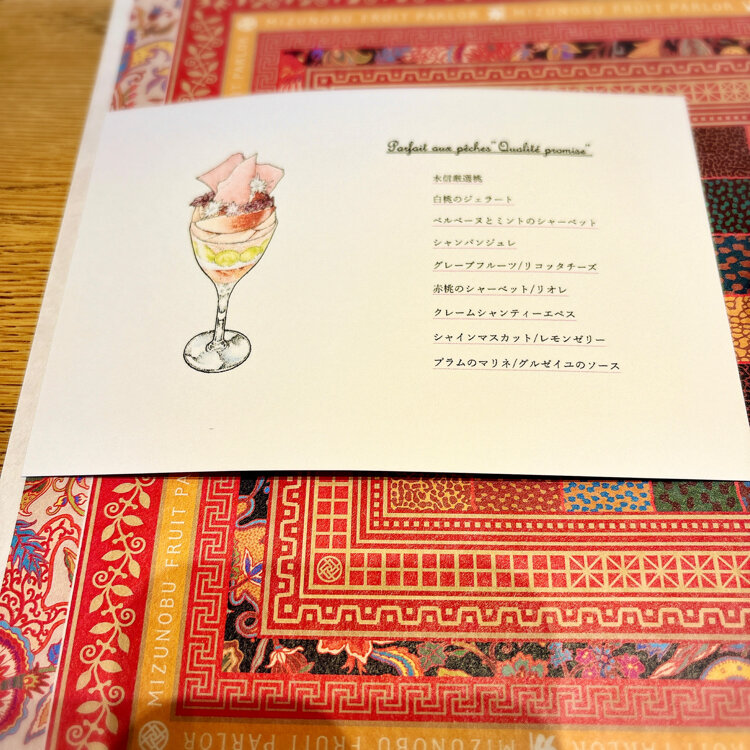 MIZUNOBU FRUIT PARLOR
MIZUNOBU FRUIT PARLOR
Parfait aux pêches"Qualité promise"
水信厳選桃
白桃のジェラート
ベルベーヌとミントのシャーベット
シャンパンジュレ
グレープフルーツ/リコッタチーズ
赤桃のシャーベット/リオレ
クレームシャンティーエペス
シャインマスカット/レモンゼリー
プラムのマリネ/グルゼイユのソース
MIZUNOBU FRUIT PAR
MIZUNOBU FRUIT PARLOR